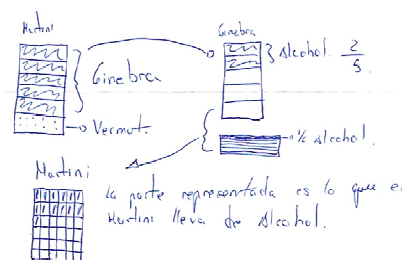 Martini
Ginebra
Ginebra
Alcohol. 2/5.
Vermut.
1/6 Alcohol.
Martini
la parte representada es lo que e
Martini lleva de Alcohol.